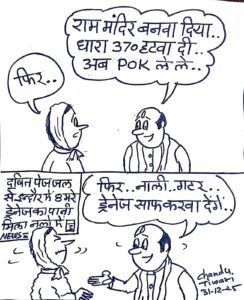 राम मंदिर बनवा दिया..
धारा 370 हटवा दी..
अब POK ले ले..
फिर..
दूषित पेयजल
से इन्दौर में उभरे
ड्रेनेज का पानी
मिला नलों में
NEWS
फिर.. नाली.. गटर..
ड्रेनेज साफ करवा देंगे.
Chandu
Tiwari
31-12-25